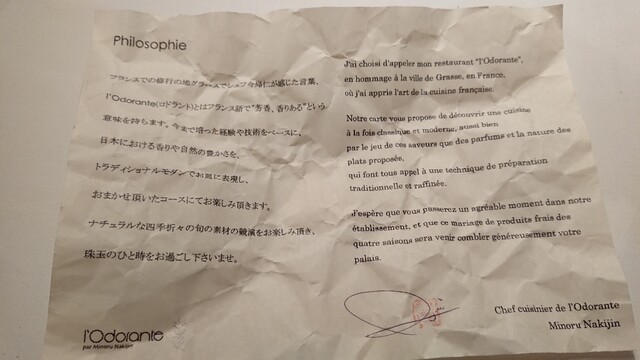 Philosophie
フランスでの修行の地グラースでシェフ今帰仁が感じた言葉、
l'Odorante(ロドラント)とはフランス語で"芳香、香りある"という
意味を持ちます。今まで培った経験や技術をベースに、
日本における香りや自然の豊かさを、
トラディショナルモダンでお皿に表現し、
おまかせ頂いたコースにてお楽しみ頂きます。
ナチュラルな四季折々の旬の素材の競演をお楽しみ頂き、
珠玉のひと時をお過ごし下さいませ。
l'Odorante
par Minoru Nakijin
J'ai choisi d'appeler mon restaurant "l'Odorante",
en hommage à la ville de Grasse, en France,
où j'ai appris l'art de la cuisine française.
Notre carte vous propose de découvrir une cuisine
à la fois classique et moderne, aussi bien
par le jeu de ces saveurs que des parfums et la nature des
plats proposée,
qui font tous appel à une technique de préparation
traditionnelle et raffinée.
J'espère que vous passerez un agréable moment dans notre
établissement, et que ce mariage de produits frais des
quatre saisons sera venir combler généreusement votre
palais.
Chef cuisinier de l'Odorante
Minoru Nakijin